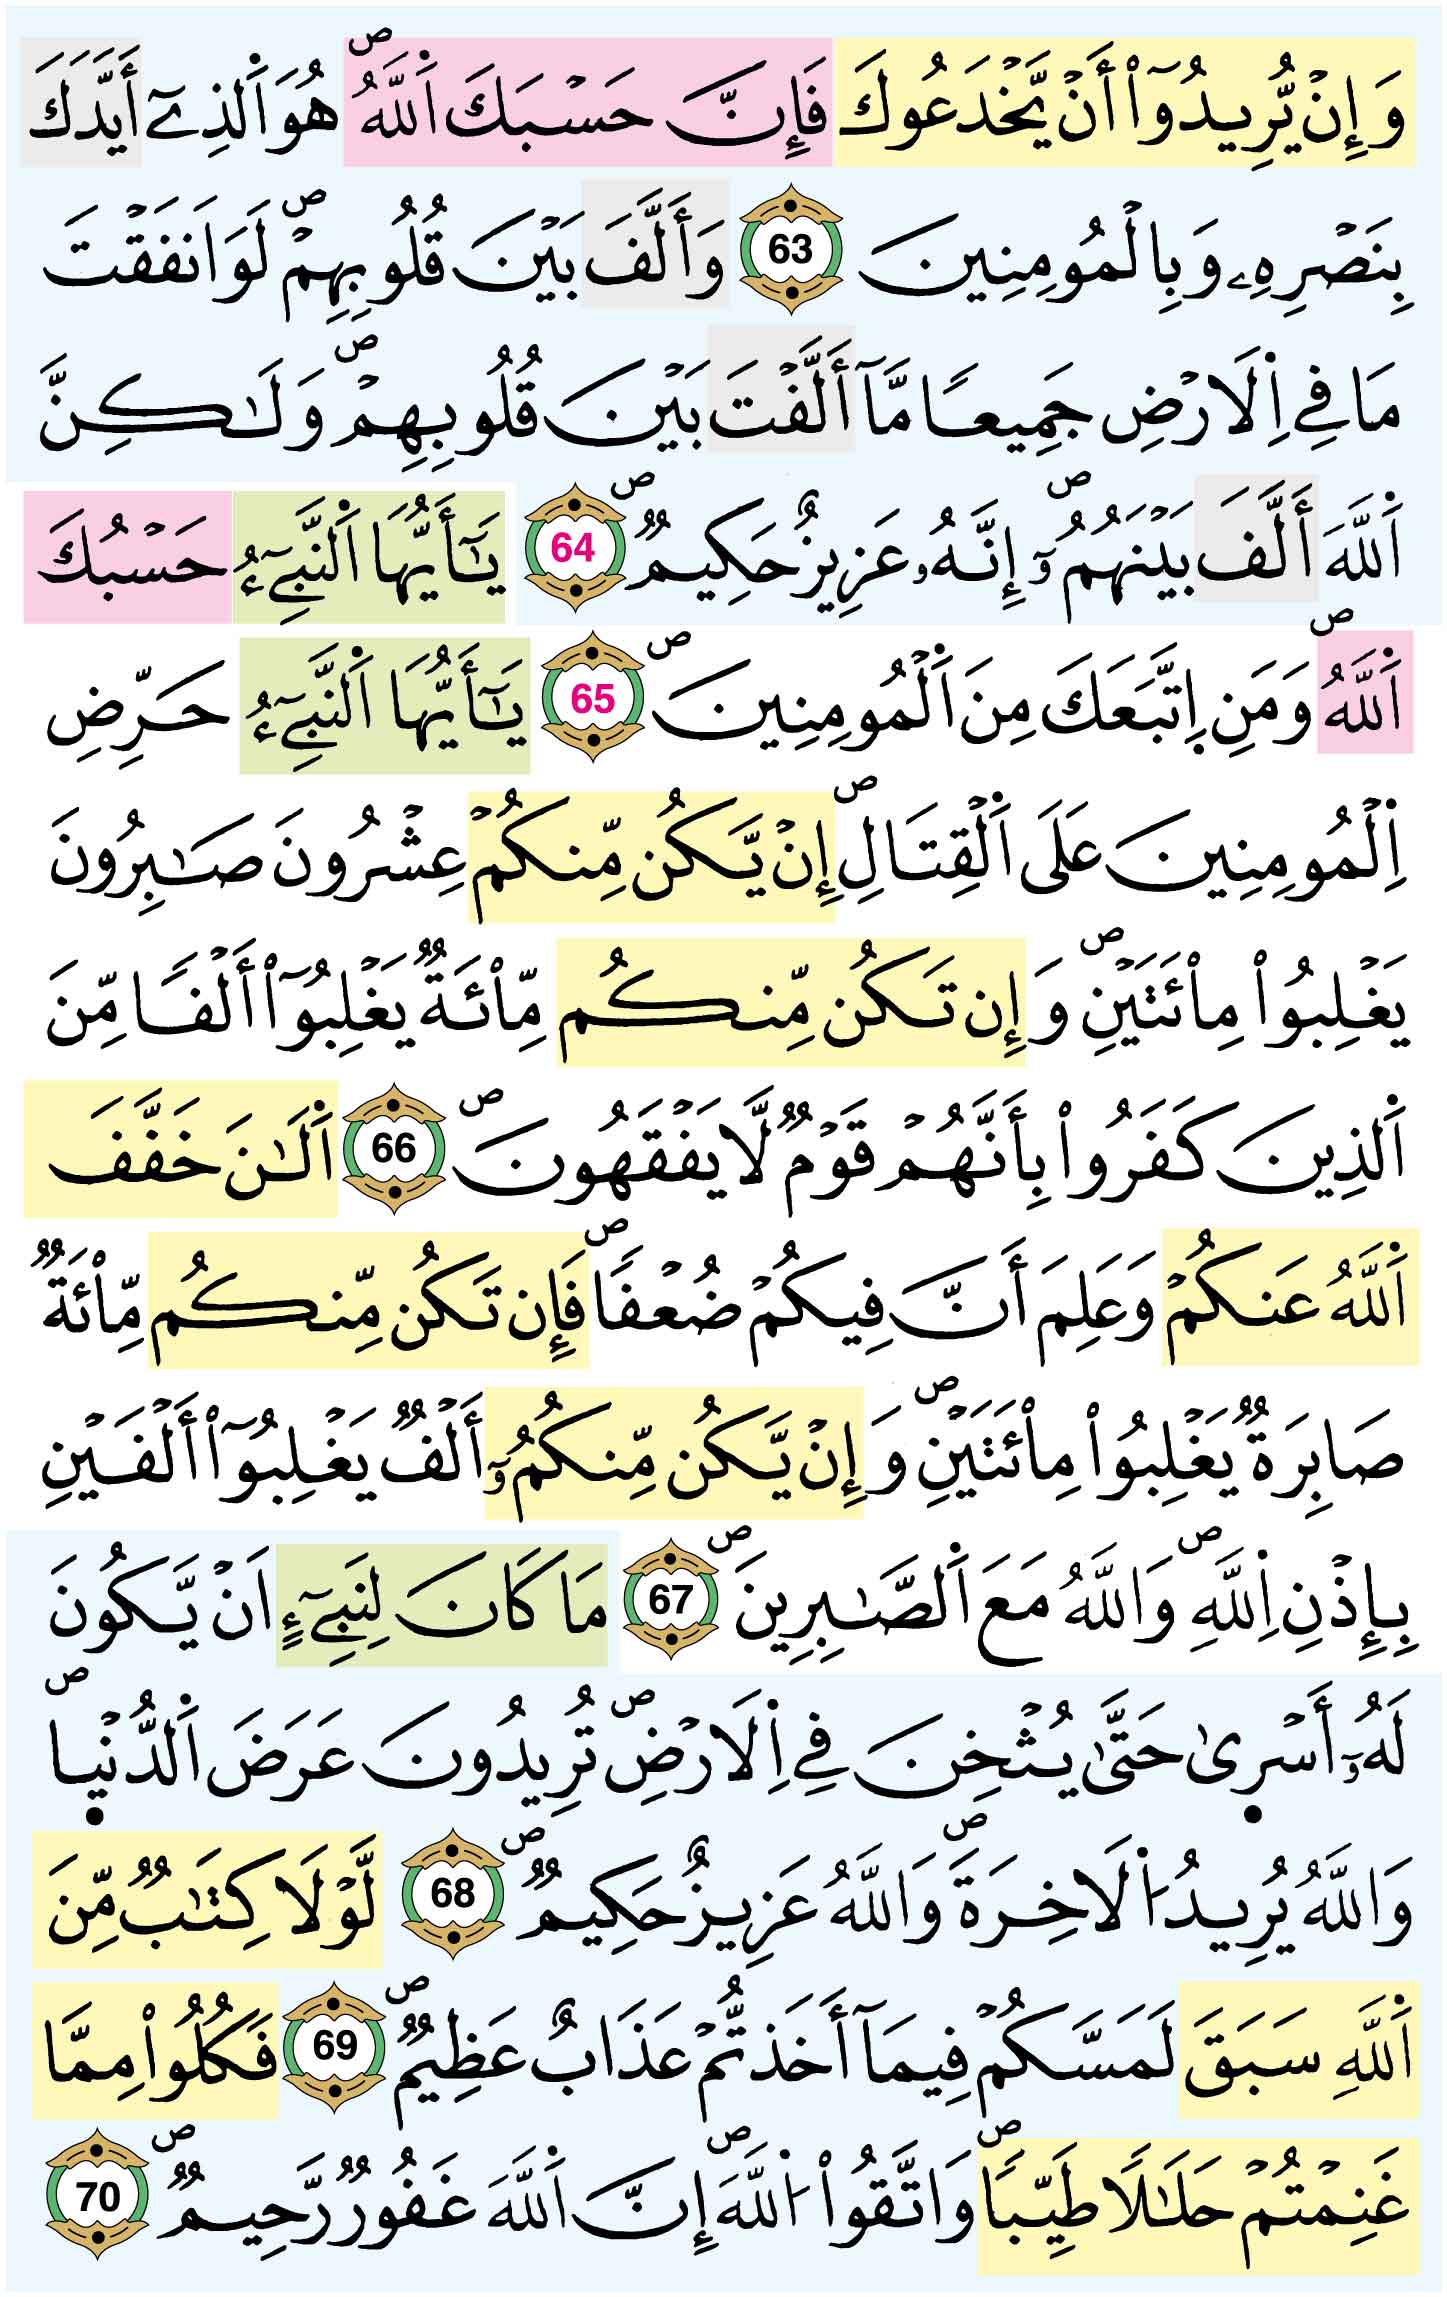 وَإِنْ يُّرِيدُوٓاْ أَنْ يَّخْدَعُوكَ فَإِنَّ حَسْبَكَ اَ۬للَّهُۖ هُوَ اَ۬لذِےٓ أَيَّدَكَ
بِنَصْرِهِۦ وَبِالْمُومِنِينَ 63 وَأَلَّفَ بَيْنَ قُلُوبِهِمْۖ لَوَ اَنفَقْتَ
مَا فِے اِ۬لَارْضِ جَمِيعاً مَّآ أَلَّفْتَ بَيْنَ قُلُوبِهِمْۖ وَلَٰكِنَّ
اَ۬للَّهَ أَلَّفَ بَيْنَهُمُۥٓۖ إِنَّهُۥ عَزِيزٌ حَكِيمٌۖ 64 يَٰٓأَيُّهَا اَ۬لنَّبِےٓءُ حَسْبُكَ
اَ۬للَّهُۖ وَمَنِ اِ۪تَّبَعَكَ مِنَ اَ۬لْمُومِنِينَۖ 65 يَٰٓأَيُّهَا اَ۬لنَّبِےٓءُ حَرِّضِ
اِ۬لْمُومِنِينَ عَلَى اَ۬لْقِتَالِۖ إِنْ يَّكُن مِّنكُمْ عِشْرُونَ صَٰبِرُونَ
يَغْلِبُواْ مِاْئَتَيْنِۖ وَإِن تَكُن مِّنكُم مِّاْئَةٌ يَغْلِبُوٓاْ أَلْفاً مِّنَ
اَ۬لذِينَ كَفَرُواْ بِأَنَّهُمْ قَوْمٌ لَّا يَفْقَهُونَۖ 66 اَ۬لَٰنَ خَفَّفَ
اَ۬للَّهُ عَنكُمْ وَعَلِمَ أَنَّ فِيكُمْ ضُعْفاًۖ فَإِن تَكُن مِّنكُم مِّاْئَةٌ
صَابِرَةٌ يَغْلِبُواْ مِاْئَتَيْنِۖ وَإِنْ يَّكُن مِّنكُمُۥٓ أَلْفٌ يَغْلِبُوٓاْ أَلْفَيْنِ
بِإِذْنِ اِ۬للَّهِۖ وَاللَّهُ مَعَ اَ۬لصَّٰبِرِينَۖ 67 مَا كَانَ لِنَبِےٓءٍ اَنْ يَّكُونَ
لَهُۥٓ أَسْر۪يٰ حَتَّيٰ يُثْخِنَ فِے اِ۬لَارْضِۖ تُرِيدُونَ عَرَضَ اَ۬لدُّنْي۪اۖ
وَاللَّهُ يُرِيدُ اُ۬لَاخِرَةَۖ وَاللَّهُ عَزِيزٌ حَكِيمٌۖ 68 لَّوْلَا كِتَٰبٌ مِّنَ
اَ۬للَّهِ سَبَقَ لَمَسَّكُمْ فِيمَآ أَخَذتُّمْ عَذَابٌ عَظِيمٌۖ 69 فَكُلُواْ مِمَّا
غَنِمْتُمْ حَلَٰلاً طَيِّباًۖ وَاتَّقُواْ اُ۬للَّهَۖ إِنَّ اَ۬للَّهَ غَفُورٌ رَّحِيمٌۖ 70